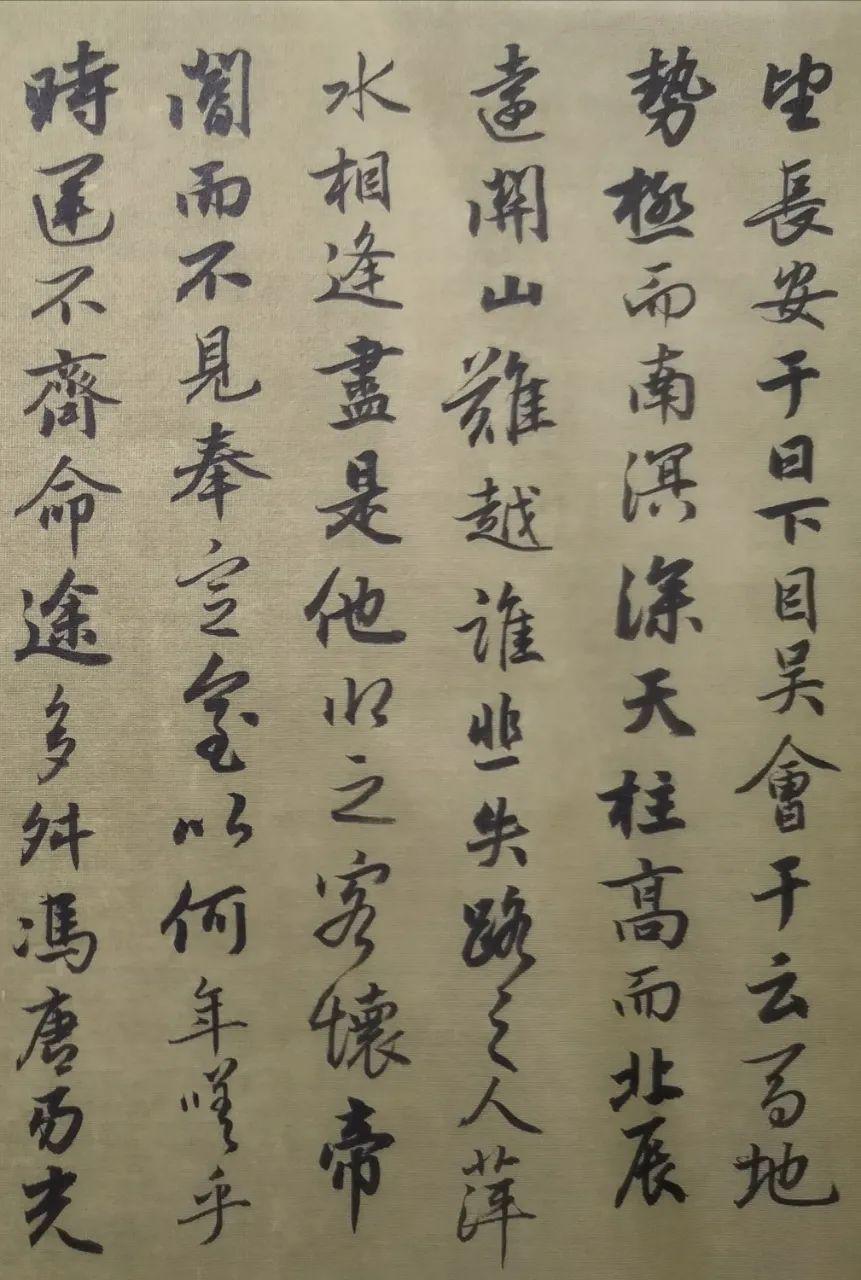 望長安于日下目吴會于云間地
勢極而南溟深天柱高而北辰
遠関山難越誰悲失路之人萍
水相逢盡是他鄉之客懷帝
閽而不見奉宣室以何年嗟乎
時運不齊命途多舛馮唐易老